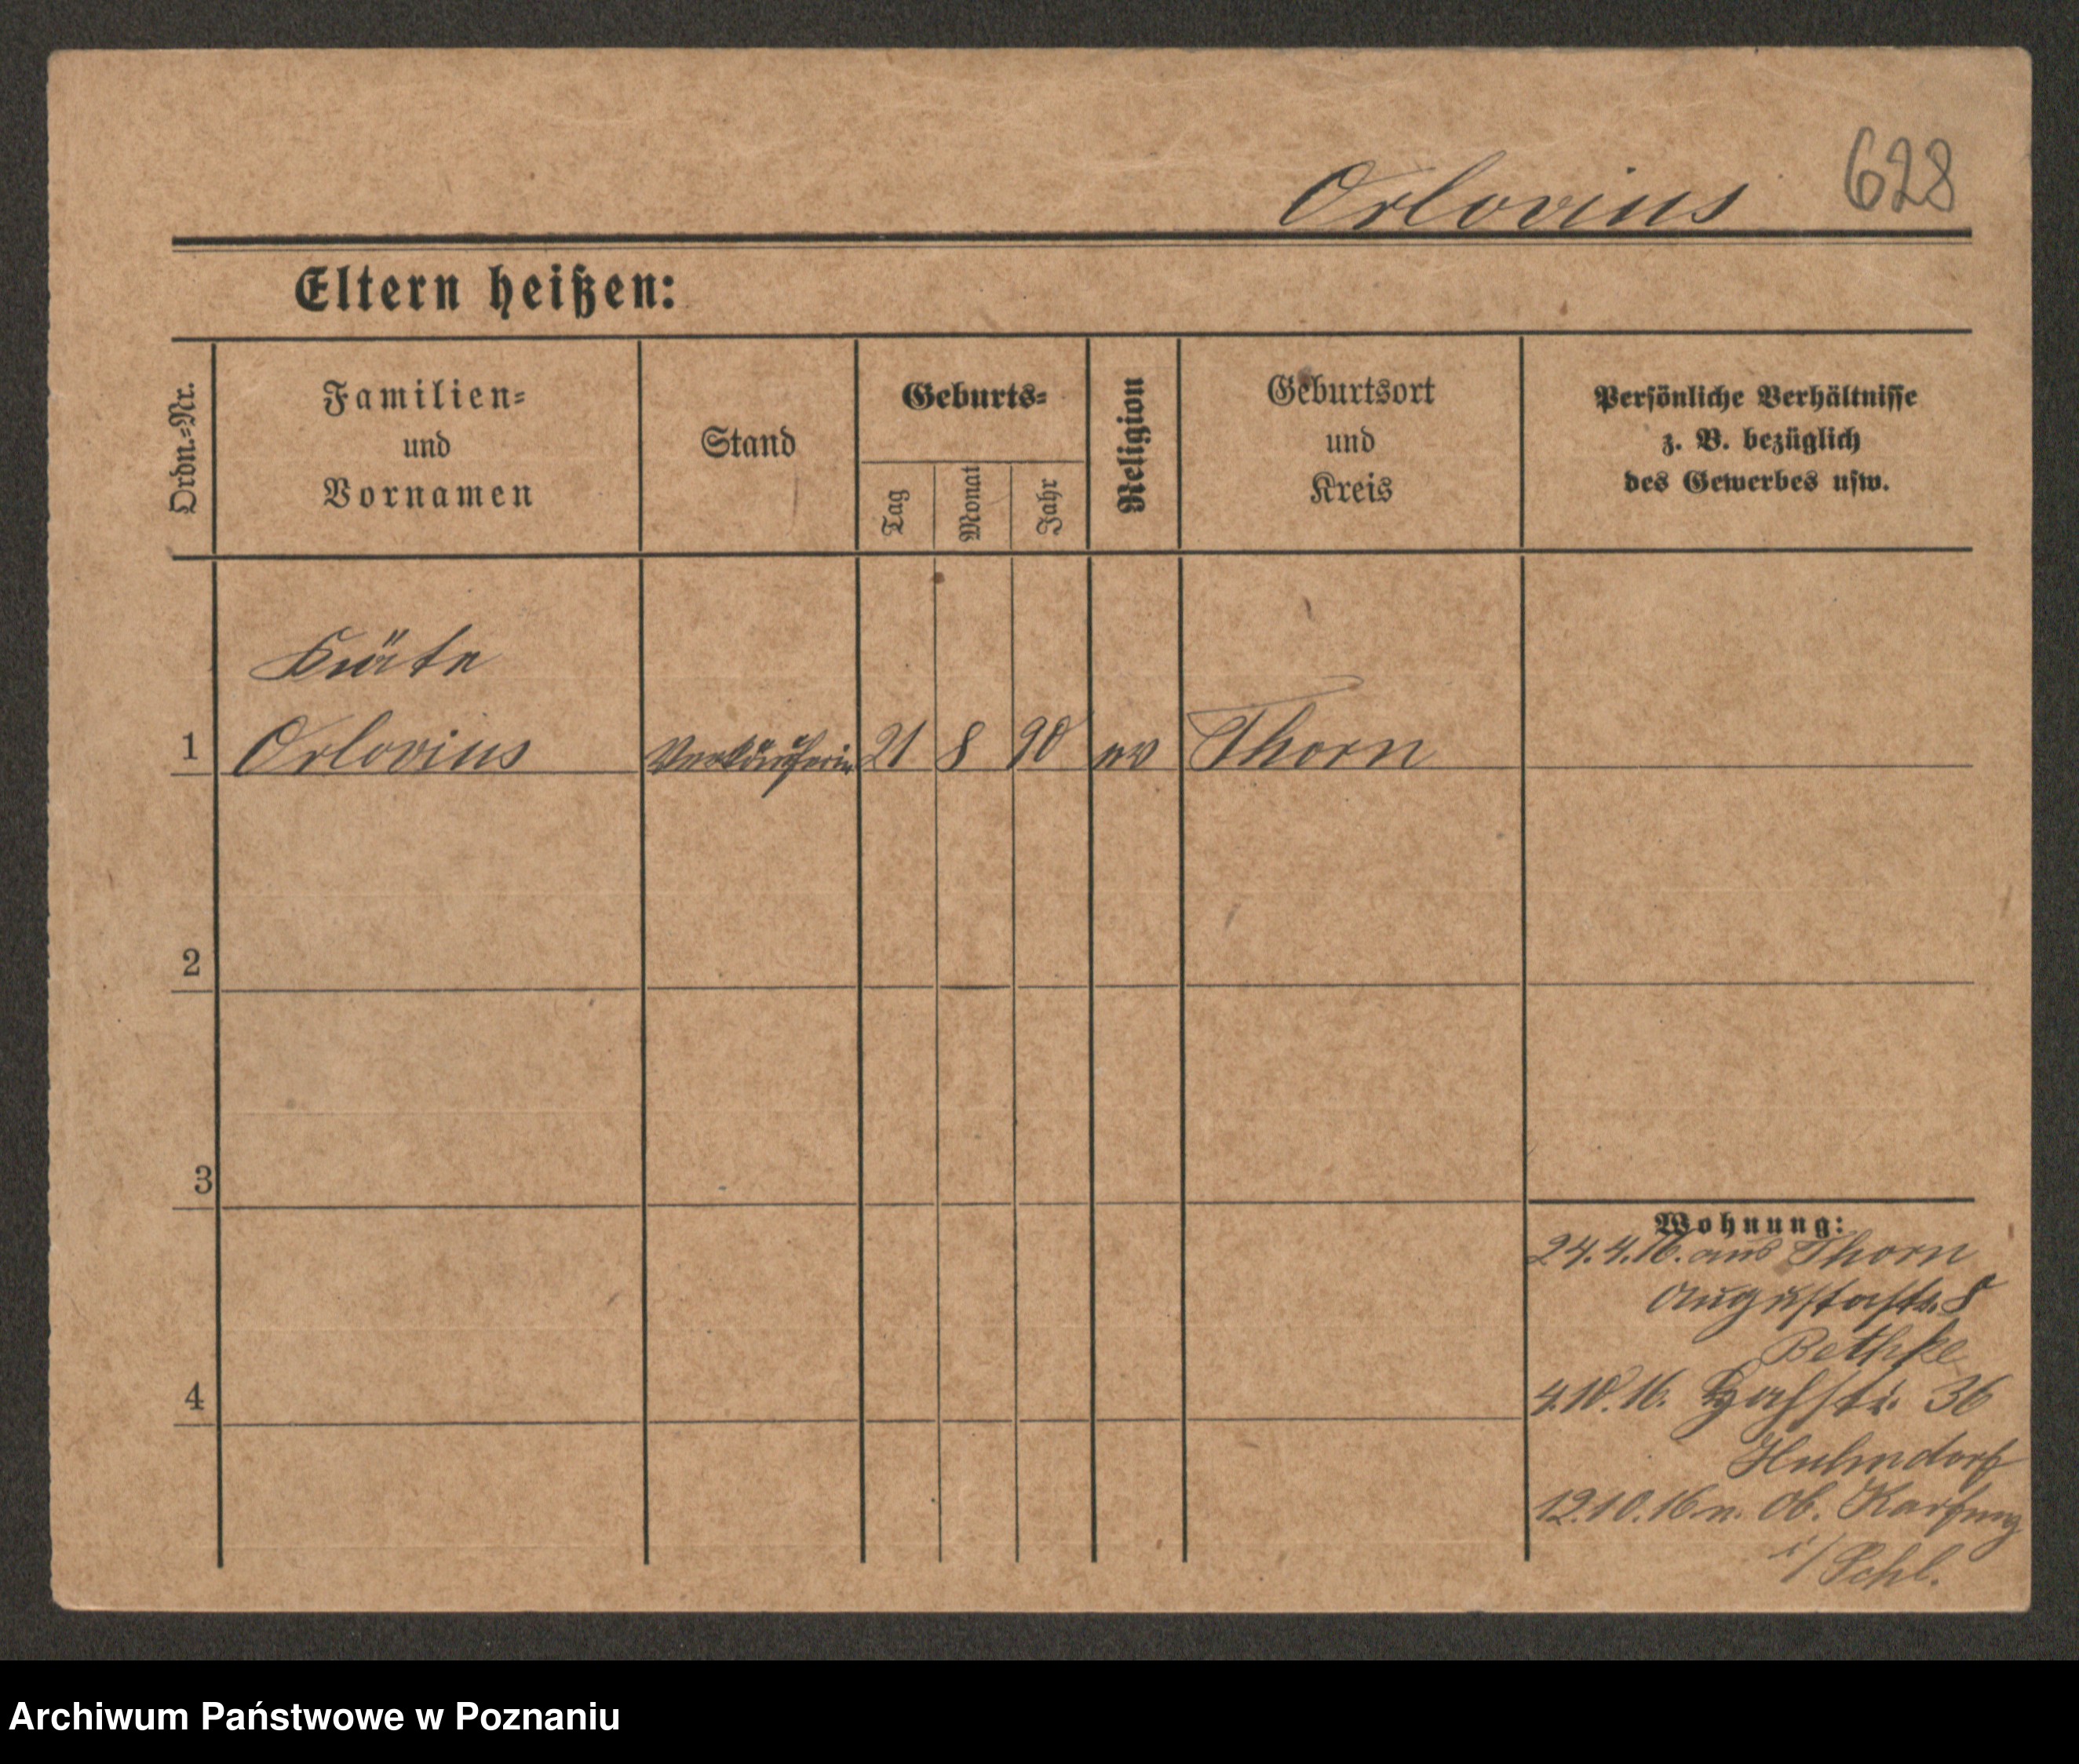 628
Orlovius
Eltern heißen:
Ordn.=Nr.
Familien=
und
Vornamen
Stand
Geburts=
Tag
Monat
Jahr
Religion
Geburtsort
und
Kreis
Persönliche Verhältnisse
z. B. bezüglich
des Gewerbes usw.
Käte
1 Orlovius Verkäuferin 21 8 90 ev Thorn
2
3
Wohnung:
24.4.16. aus Thorn
Augustastr. 8
Bethke
4
4.10.16. 36
12.10.16 n. Ob.
i/Schl.
Archiwum Państwowe w Poznaniu